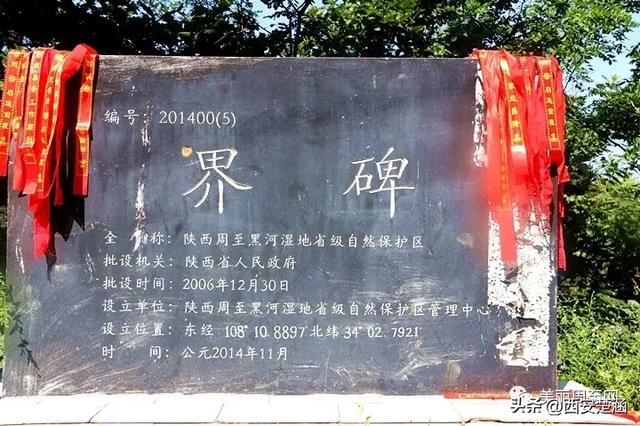 编号：201400(5)
界 碑
全 称：陕西周至黑河湿地省级自然保护区
批设机关：陕西省人民政府
批设时间：2006年12月30日
设立单位：陕西周至黑河湿地省级自然保护区管理中心
设立位置：东经 108°10.8897'北纬 34°02.7921'
时 间：公元2014年11月
美丽周至网
头条@西安楚涵